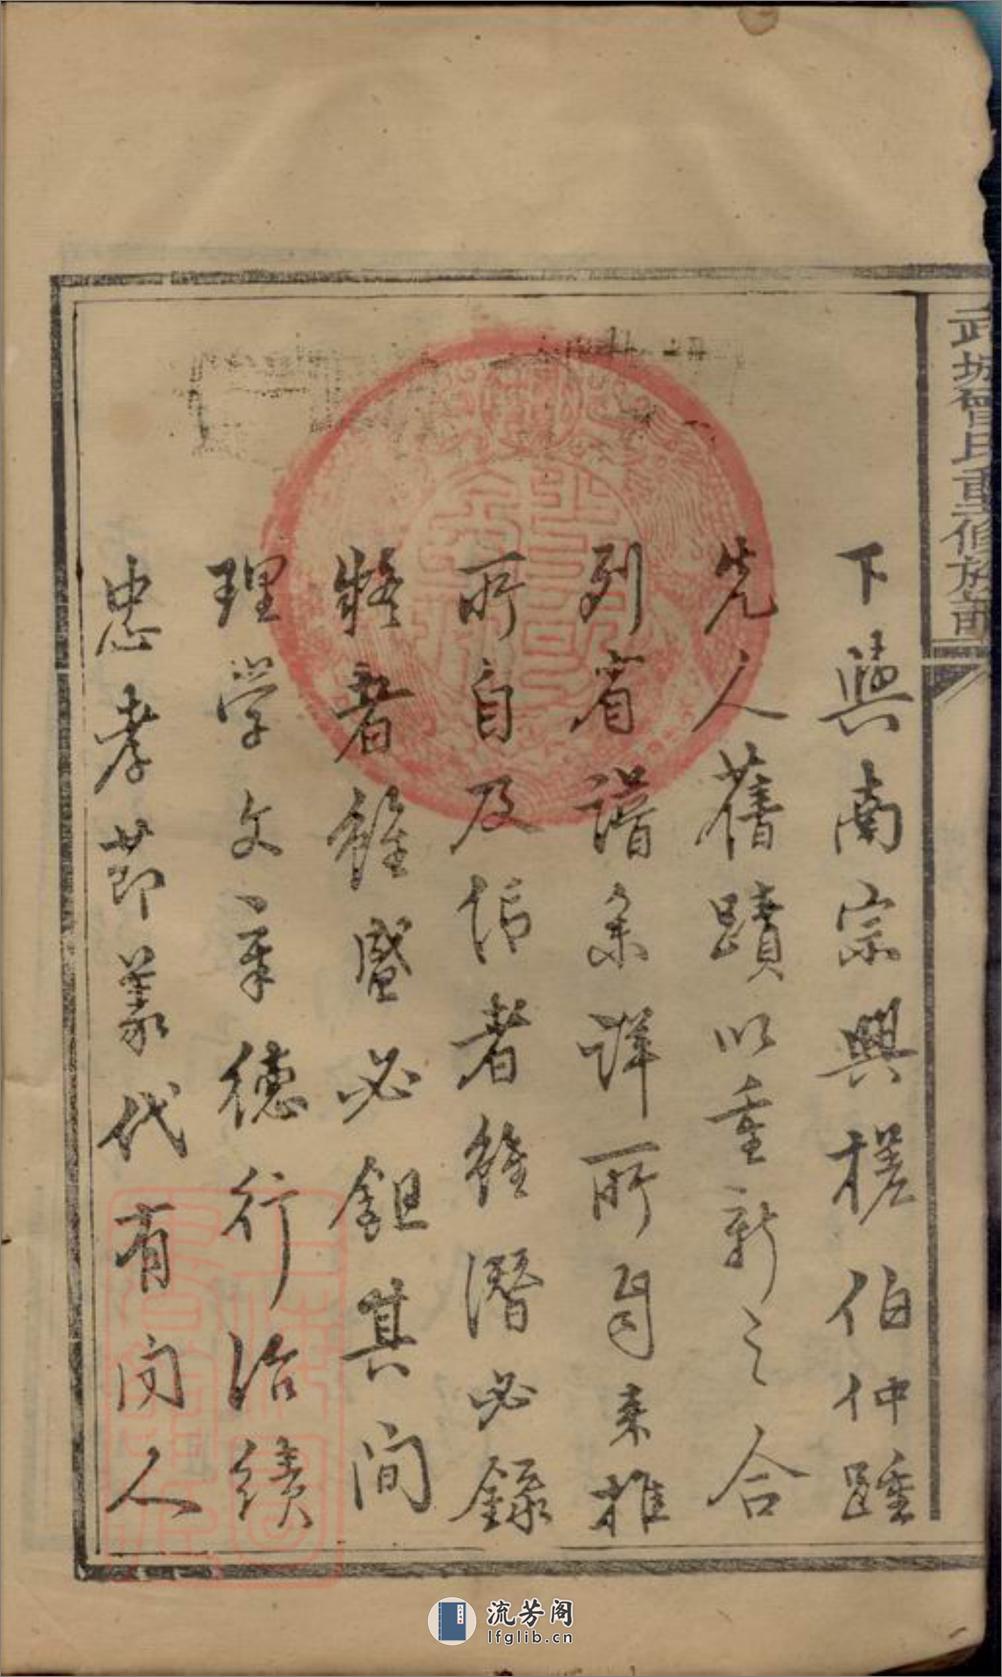 武城曾氏重修族譜
下與南宗興槎伯仲踵
先人舊蹟以重新之合
列省譜系詳所自來推
所自及信者雖潛必錄
疑者雖盛必鉏其間
理学文章德行治績
忠孝節義代有闻人
流芳阁
lfglib.cn